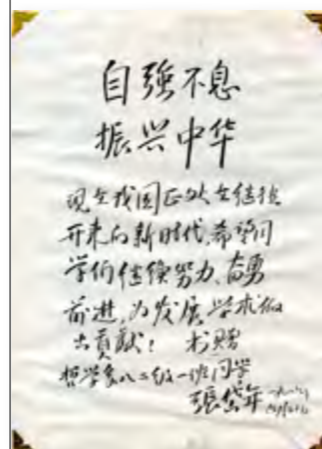 自強不息
振兴中华
现在我国正处在继往
开来的新时代,希望同
学们继续努力、奋勇
前进,为发展学术做
出貢献! 书赠
哲学系八二级一班同学
張岱年